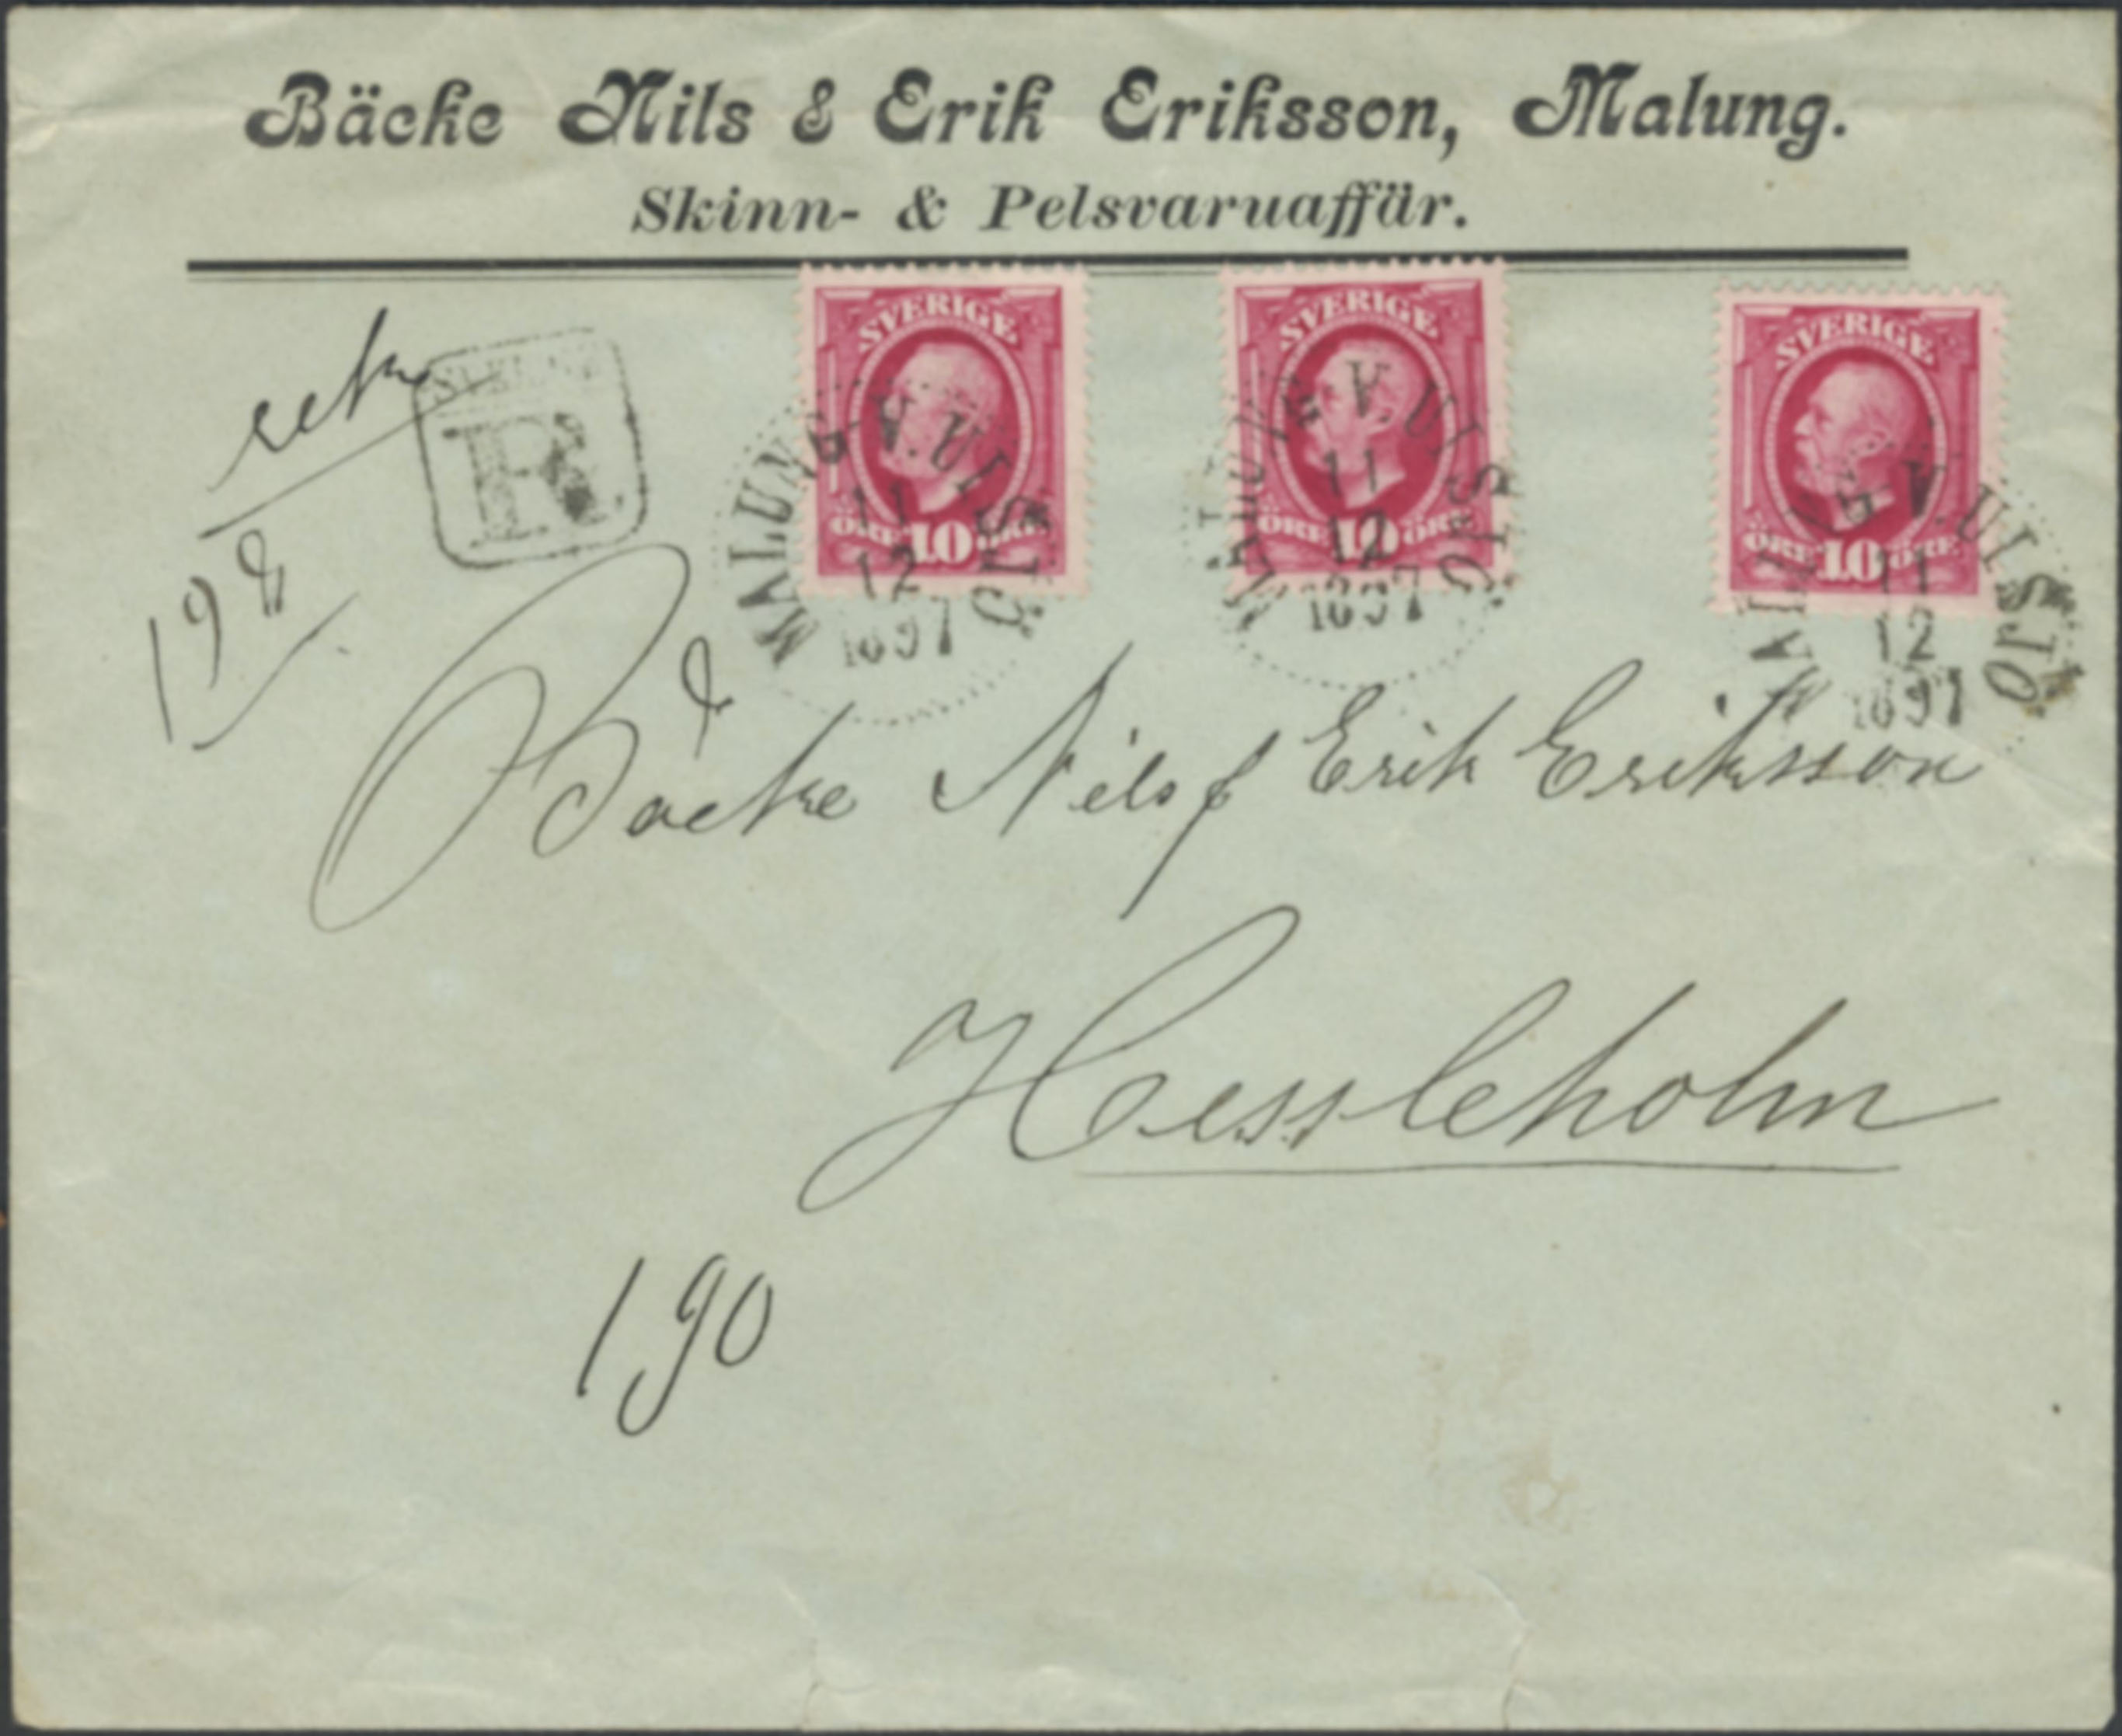 Bäcke Nils & Erik Eriksson, Malung.
Skinn- & Pelsvaruaffär.
SVERIGE
ÖRE 10 ÖRE
SVERIGE
ÖRE 10 ÖRE
SVERIGE
ÖRE 10 ÖRE
R
198
MALUNG-V.UTSJÖ
11
12
1897
MALUNG-V.UTSJÖ
11
12
1897
MALUNG-V.UTSJÖ
11
12
1897
Backe Nils & Erik Eriksson
Hessleholm
190